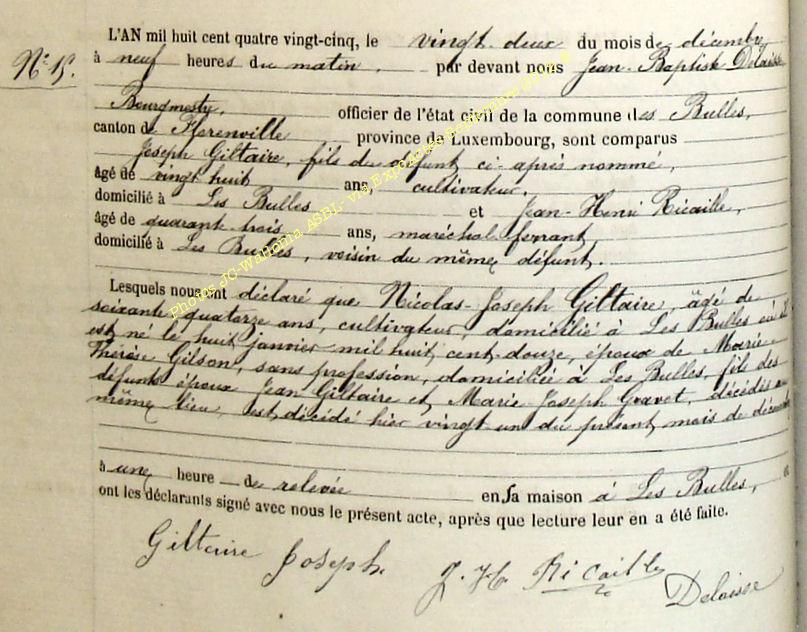 N° 15.
L'AN mil huit cent quatre vingt-cinq, le vingt deux du mois de décembre
à neuf heures du matin, par devant nous Jean-Baptiste Delaisse
Bourgmestre, officier de l'état civil de la commune des Bulles,
canton de Florenville province de Luxembourg, sont comparus
Joseph Giltaire, fils du défunt ci-après nommé,
âgé de vingt huit ans, cultivateur,
domicilié à Les Bulles et Jean-Henri Ricaille,
âgé de quarante trois ans, maréchal ferrant
domicilié à Les Bulles, voisin du même défunt.
Lesquels nous ont déclaré que Nicolas-Joseph Giltaire, âgé de
soixante quatorze ans, cultivateur, domicilié à Les Bulles où il
est né le huit janvier mil huit cent douze, époux de Marie-
Thérèse Gilson, sans profession, domiciliée à Les Bulles, fils des
défunts époux Jean Giltaire et Marie-Joseph Gravet, décédés au
même lieu, est décédé hier vingt un du présent mois de décembre
à une heure de relevée en sa maison à Les Bulles, et
ont les déclarants signé avec nous le présent acte, après que lecture leur en a été faite.
Giltaire Joseph J. H. Ricaille Delaisse
Photos JC-Wallonia ASBL- via Expocartes